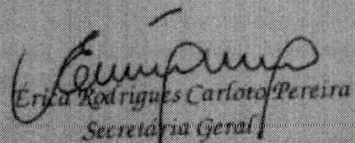 Érica Rodrigues Carloto Pereira
Secretária Geral